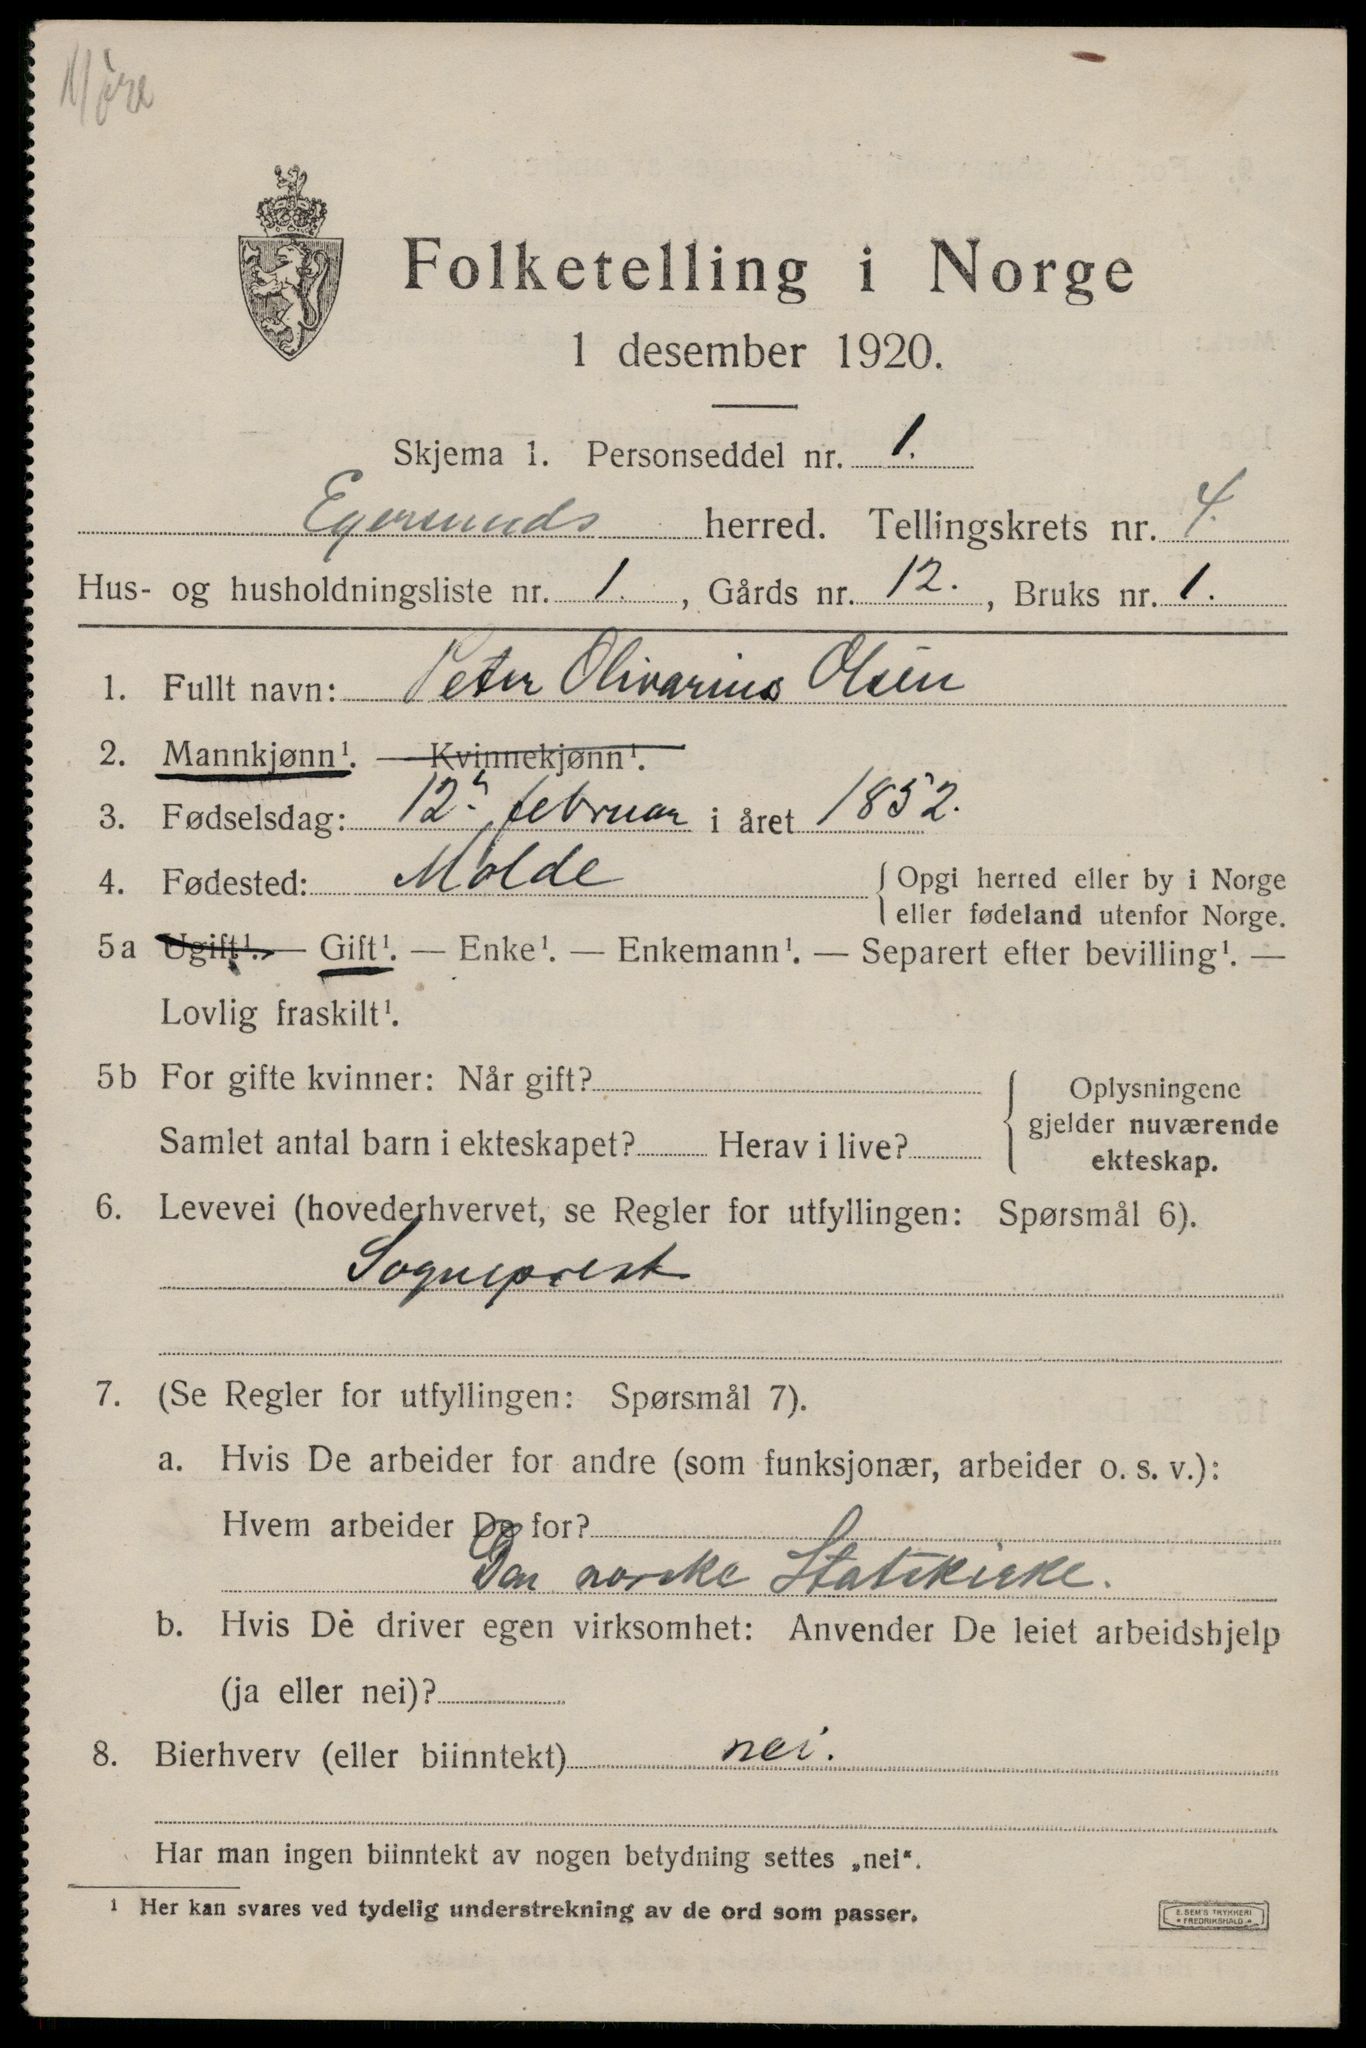 Møre
Folketelling i Norge
1 desember 1920.
Skjema 1. Personseddel nr. 1.
Egersunds herred. Tellingskrets nr. 4.
Hus- og husholdningsliste nr. 1. , Gårds nr. 12. , Bruks nr. 1.
1. Fullt navn: Peter Olivarius Olsen
2. Mannkjønn¹. — Kvinnekjønn¹.
3. Fødselsdag: 12. februar i året 1852.
4. Fødested: Molde { Opgi herred eller by i Norge
eller fødeland utenfor Norge.
5a Ugift¹. — Gift¹. — Enke¹. — Enkemann¹. — Separert efter bevilling¹. —
Lovlig fraskilt¹.
5b For gifte kvinner: Når gift? { Oplysningene
gjelder nuværende
Samlet antal barn i ekteskapet? Herav i live?
ekteskap.
6. Levevei (hovederhvervet, se Regler for utfyllingen: Spørsmål 6).
Sogneprest
7. (Se Regler for utfyllingen: Spørsmål 7).
a. Hvis De arbeider for andre (som funksjonær, arbeider o. s. v.):
Hvem arbeider De for?
Den norske Statskirke.
b. Hvis De driver egen virksomhet: Anvender De leiet arbeidshjelp
(ja eller nei)?
8. Bierhverv (eller biinntekt) nei.
Har man ingen biinntekt av nogen betydning settes „nei“.
¹ Her kan svares ved tydelig understrekning av de ord som passer.
E. SEM'S TRYKKERI
* FREDRIKSHALD *